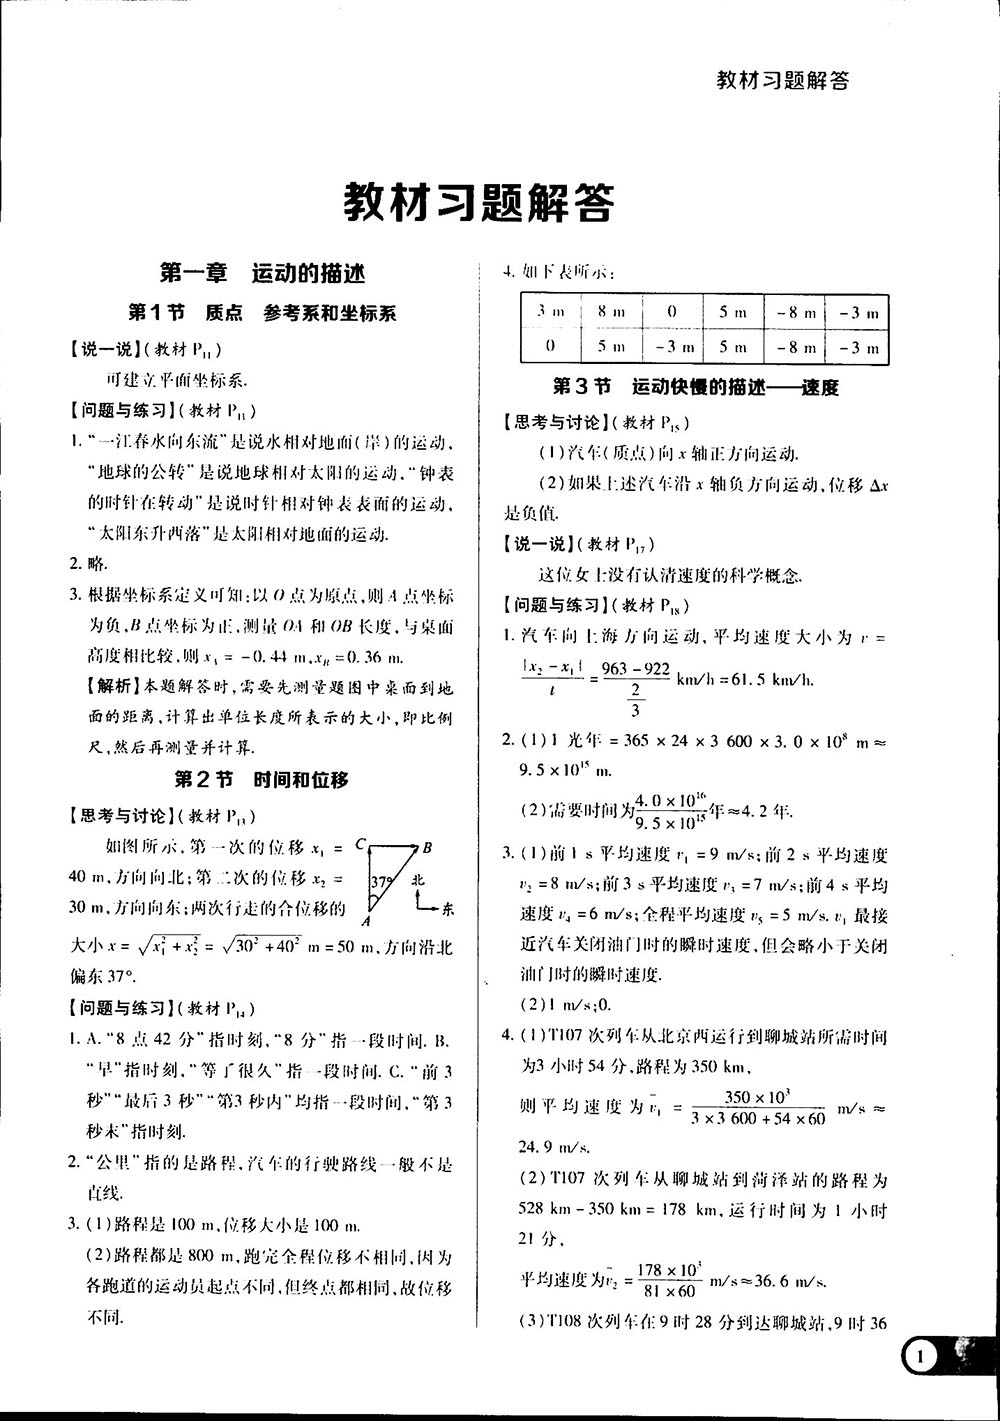 教材习题解答
教材习题解答
第一章 运动的描述
第1节 质点 参考系和坐标系
【说一说】(教材 P₁₁)
可建立平面坐标系.
【问题与练习】(教材 P₁₁)
1. “一江春水向东流”是说水相对地面(岸)的运动,
“地球的公转”是说地球相对太阳的运动,“钟表
的时针在转动”是说时针相对钟表表面的运动,
“太阳东升西落”是太阳相对地面的运动.
2. 略.
3. 根据坐标系定义可知:以 O 点为原点,则 A 点坐标
为负,B 点坐标为正,测量 OA 和 OB 长度,与桌面
高度相比较,则 x_A = -0.44 m,x_B = 0.36 m.
【解析】本题解答时,需要先测量题图中桌面到地
面的距离,计算出单位长度所表示的大小,即比例
尺,然后再测量并计算.
第2节 时间和位移
【思考与讨论】(教材 P₁₃)
如图所示,第一次的位移 x₁ =
40 m,方向向北;第二次的位移 x₂ =
30 m,方向向东;两次行走的合位移的
C B
37° 北
A 东
大小 x = √(x₁² + x₂²) = √(30² + 40²) m = 50 m,方向沿北
偏东 37°.
【问题与练习】(教材 P₁₄)
1. A. “8 点 42 分”指时刻,“8 分”指一段时间. B.
“早”指时刻,“等了很久”指一段时间. C. “前 3
秒”“最后 3 秒”“第3 秒内”均指一段时间,“第 3
秒末”指时刻.
2. “公里”指的是路程,汽车的行驶路线一般不是
直线.
3. (1)路程是 100 m,位移大小是 100 m.
(2)路程都是 800 m,跑完全程位移不相同,因为
各跑道的运动员起点不同,但终点都相同,故位移
不同.
4. 如下表所示:
3 m 8 m 0 5 m -8 m -3 m
0 5 m -3 m 5 m -8 m -3 m
第3节 运动快慢的描述——速度
【思考与讨论】(教材 P₁₅)
(1)汽车(质点)向 x 轴正方向运动.
(2)如果上述汽车沿 x 轴负方向运动,位移 Δx
是负值.
【说一说】(教材 P₁₇)
这位女士没有认清速度的科学概念.
【问题与练习】(教材 P₁₈)
1. 汽车向上海方向运动,平均速度大小为 v =
|x₂ - x₁|/t = (963 - 922)/(2/3) km/h = 61.5 km/h.
2. (1)1 光年 = 365 × 24 × 3 600 × 3.0 × 10⁸ m ≈
9.5 × 10¹⁵ m.
(2)需要时间为 (4.0 × 10¹⁶)/(9.5 × 10¹⁵) 年 ≈ 4.2 年.
3. (1)前 1 s 平均速度 v₁ = 9 m/s;前 2 s 平均速度
v₂ = 8 m/s;前 3 s 平均速度 v₃ = 7 m/s;前 4 s 平均
速度 v₄ = 6 m/s;全程平均速度 v₅ = 5 m/s. v₁ 最接
近汽车关闭油门时的瞬时速度,但会略小于关闭
油门时的瞬时速度.
(2)1 m/s;0.
4. (1)T107 次列车从北京西运行到聊城站所需时间
为3 小时 54 分,路程为 350 km,
则平均速度为 v̄₁ = (350 × 10³)/(3 × 3 600 + 54 × 60) m/s ≈
24.9 m/s.
(2)T107 次列车从聊城站到菏泽站的路程为
528 km - 350 km = 178 km,运行时间为 1 小时
21 分,
平均速度为 v̄₂ = (178 × 10³)/(81 × 60) m/s ≈ 36.6 m/s.
(3)T108 次列车在 9 时 28 分到达聊城站,9 时 36
1